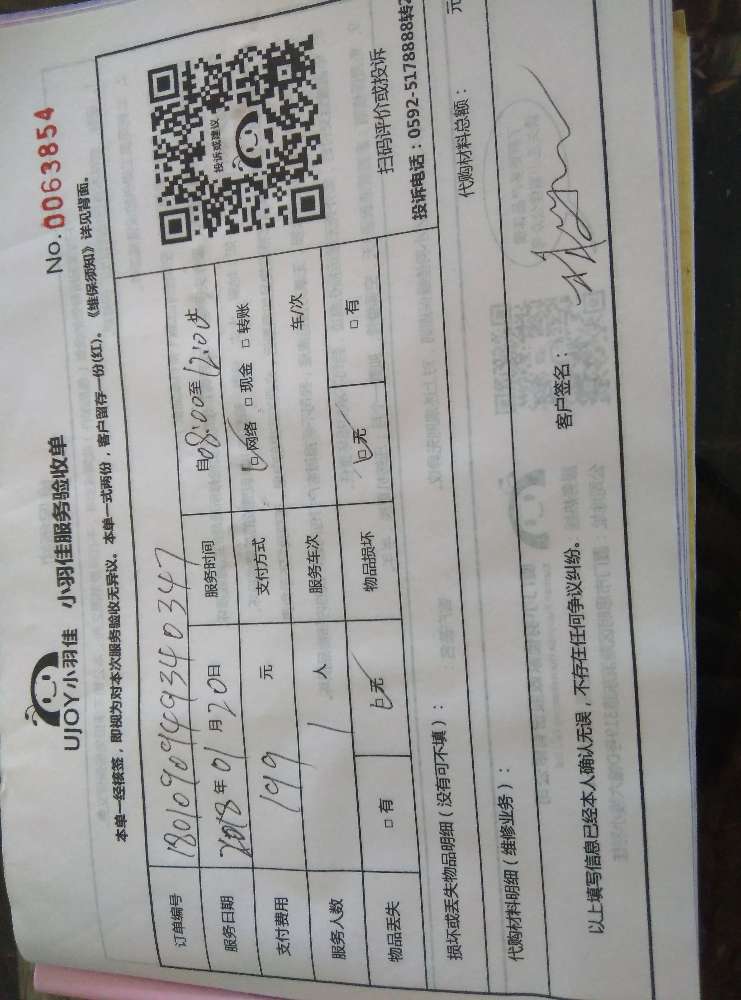 UJOY小羽佳 小羽佳服务验收单
No. 0063854
本单一经核签，即视为对本次服务验收无异议。本单一式两份，客户留存一份(红)。《维保须知》详见背面。
订单编号 180109094934 0347
服务日期 2018年01月20日 服务时间 自08:00至12:00止
支付费用 199 元 支付方式 □网络 □现金 □转账
服务人数 1 人 服务车次 车/次
物品丢失 □有 □无 物品损坏 □无 □有
投诉或建议
扫码评价或投诉
投诉电话：0592-5178888转2
损坏或丢失物品明细（没有可不填）：
代购材料明细（维修业务）： 代购材料总额： 元
以上填写信息已经本人确认无误，不存在任何争议纠纷。 客户签名：